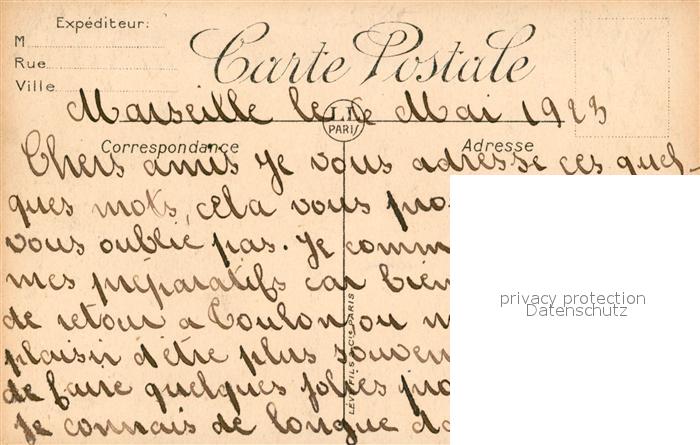 Expéditeur:
M
Rue
Ville
Carte Postale
LL
PARIS
Marseille le 6 Mai 1923
Correspondance
Adresse
Chers amis je vous adresse ces quel-
ques mots, cela vous
vous oublie pas. Je
mes préparatifs car bien
de retour a Toulon ou
plaisir d'être plus
de faire quelques jolies
Je connais de longue
LEVY FILS & CIE PARIS
privacy protection
Datenschutz